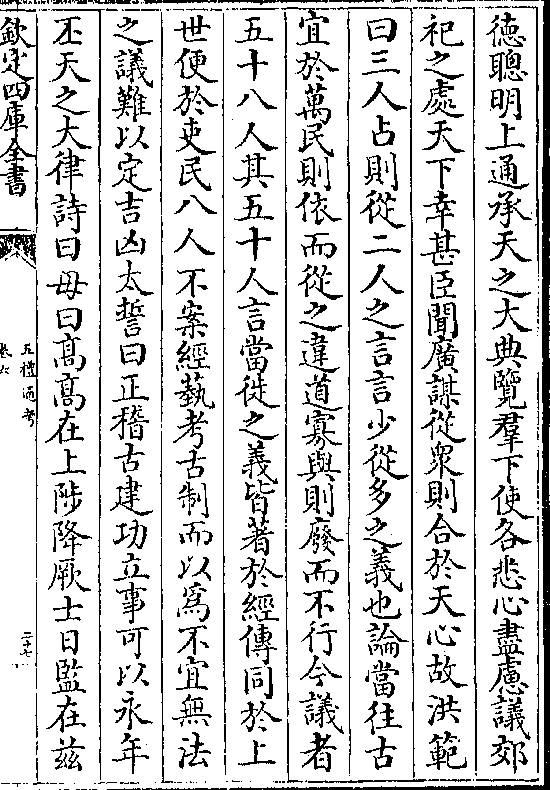 德聰明上通承天之大典覽羣下使各悉心盡慮議郊
祀之處天下幸甚臣聞廣謀從衆則合於天心故洪範
曰三人占則從二人之言言少從多之義也論當往古
宜於萬民則依而從之違道寡與則廢而不行今議者
五十八人其五十人言當徙之義皆著於經傳同於上
世便於吏民八人不案經藝考古制而以爲不宜無法
之議難以定吉凶太誓曰正稽古建功立事可以永年
丕天之大律詩曰毋曰髙髙在上陟降厥士日監在兹
欽定四庫全書
五禮通考
卷六
二十七